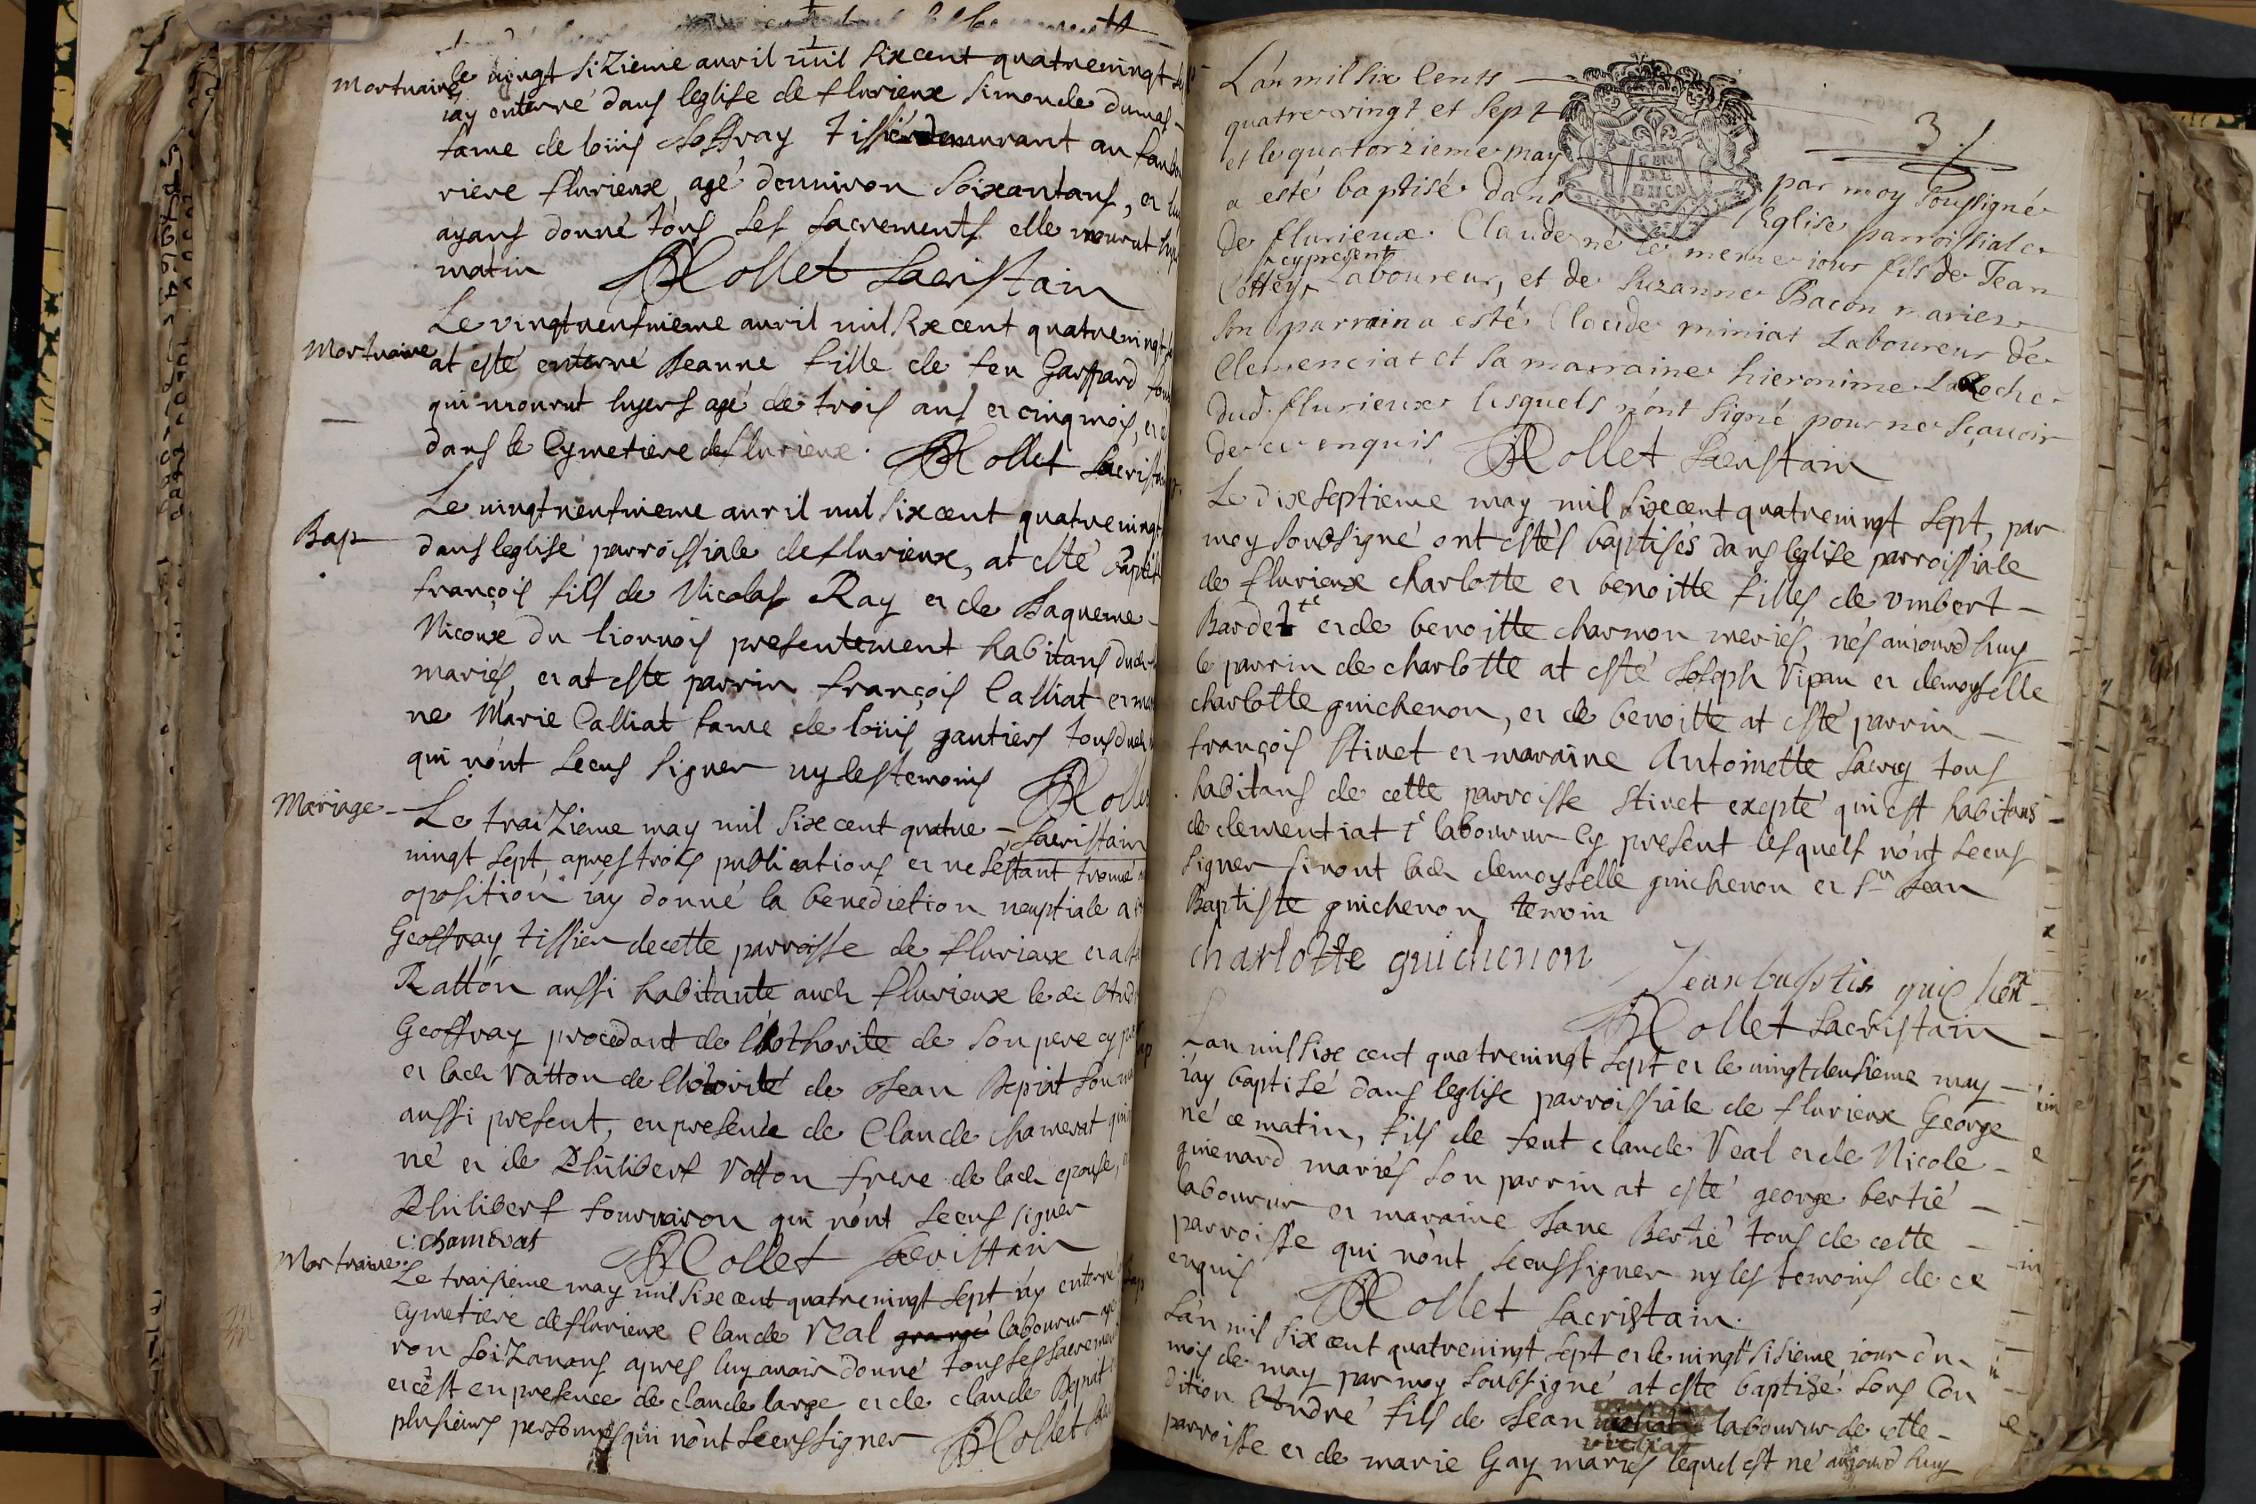 Mortuaire
le vingt sizieme auril mil six cent quatreuingt
iay enterré dans leglise de flurieux simonde dumas
fame de loüis Joffray tissier demurant au
riere flurieux agé denuiron soixantans, et
ayans donné tous les sacrements elle mourut
matin Rollet sacristain
Mortuaire
Le vingtneufuieme auril mil six cent quatreuingt
at esté enterré Jeanne fille de feu Gaspard
qui mourut hyers agé de trois ans et cinq mois, et
dans le Cymetiere de flurieux. Rollet sacristain
Bap
Le uingtneufuieme auril mil six cent quatreuingt
dans leglise parroissiale de flurieux, at esté Baptisé
françois fils de Nicolas Ray et de Jaqueme
Nicoux du lionnois presentement habitans dud.
mariés, et at este parrin françois Calliat et ma
ne Marie Calliat fame de loüis gautiers tous dud.
qui n'ont sceus signer ny les temoins Rollet
sacristain
Mariage
Le traizieme may mil six cent quatre
uingt sept, apres trois publications et ne sestant trouué
oposition iay donné la benediction neuptiale a
Geoffray tissier de cette parroisse de flurieux et a
Ratton aussi habitante aud. flurieux le d. André
Geoffray procedant de lhothorite de son pere cy
et lad. Ratton de lhotorité de Jean Depirat son
aussi present, en presence de Claude chamerat
né et de Philibert Votton frere de lad. epouse,
Philibert tournaron qui n'ont sceus signer
C. chamerat
Rollet sacristain
Mortuaire
Le traisieme may mil six cent quatreuingt sept iay enterré
Cymetiere de flurieux Claude Veal grangé labourur agé
ron soizanans apres luy auoir donné tous ses sacrements
et cest en presence de claude large et de claude Depirat
plusieurs personnes qui n'ont sceus signer Rollet
L'an mil six Cents
quatre vingt et sept
et le quatorzieme may
3
a esté baptisé dans par moy soussigné
l'Eglise parroissiale
de flurieux Claude né le meme iour fils de Jean
cy present
Cottey Laboureur, et de Suzanne Bacon mariez
son parrain a esté Claude miniat Laboureur de
Clemenciat et sa marraine hieronime La Roche
dud. flurieux lesquels n'ont signé pour ne sçavoir
de ce enquis Rollet sacristain
Le dixseptieme may mil six cent quatreuingt sept, par
moy soubsigné ont estés baptisés dans leglise parroissiale
de flurieux charlotte et benoitte filles de umbert
Bardet et de benoitte charnon meriés, nés auiourdhuy
le parrin de charlotte at esté Joseph Vipau et demoyselle
charlotte guichenon, et de benoitte at esté parrin
françois stiuet et maraine Antoinette tous
habitans de cette parroisse stiuet excepté qui est habitans
de clementiat labourur Cy present lesquels n'ont sceus
signer sinont lad. demoyselle guichenon et sr Jean
Baptiste guichenon temoin
charlotte guichenon
Jean baptiste guichenon
Rollet sacristain
Lan mil six cent quatreuingt sept et le uingtdeusieme may
iay baptisé dans leglise parroissiale de flurieux George
né ce matin, fils de feut claude Veal et de Nicole
guienard mariés son parrin at esté george bertié
labourur et maraine Jane Bertié tous de cette
parroisse qui n'ont sceus signer ny les temoins de ce
enquis Rollet sacristain.
Lan mil six cent quatreuingt sept et le uingt sisieme iour du
mois de may par moy soubsigné at esté baptizé sous Con
dition André fils de Jean labourur de cette
parroisse et de marie Gay mariés lequel est né auiourdhuy